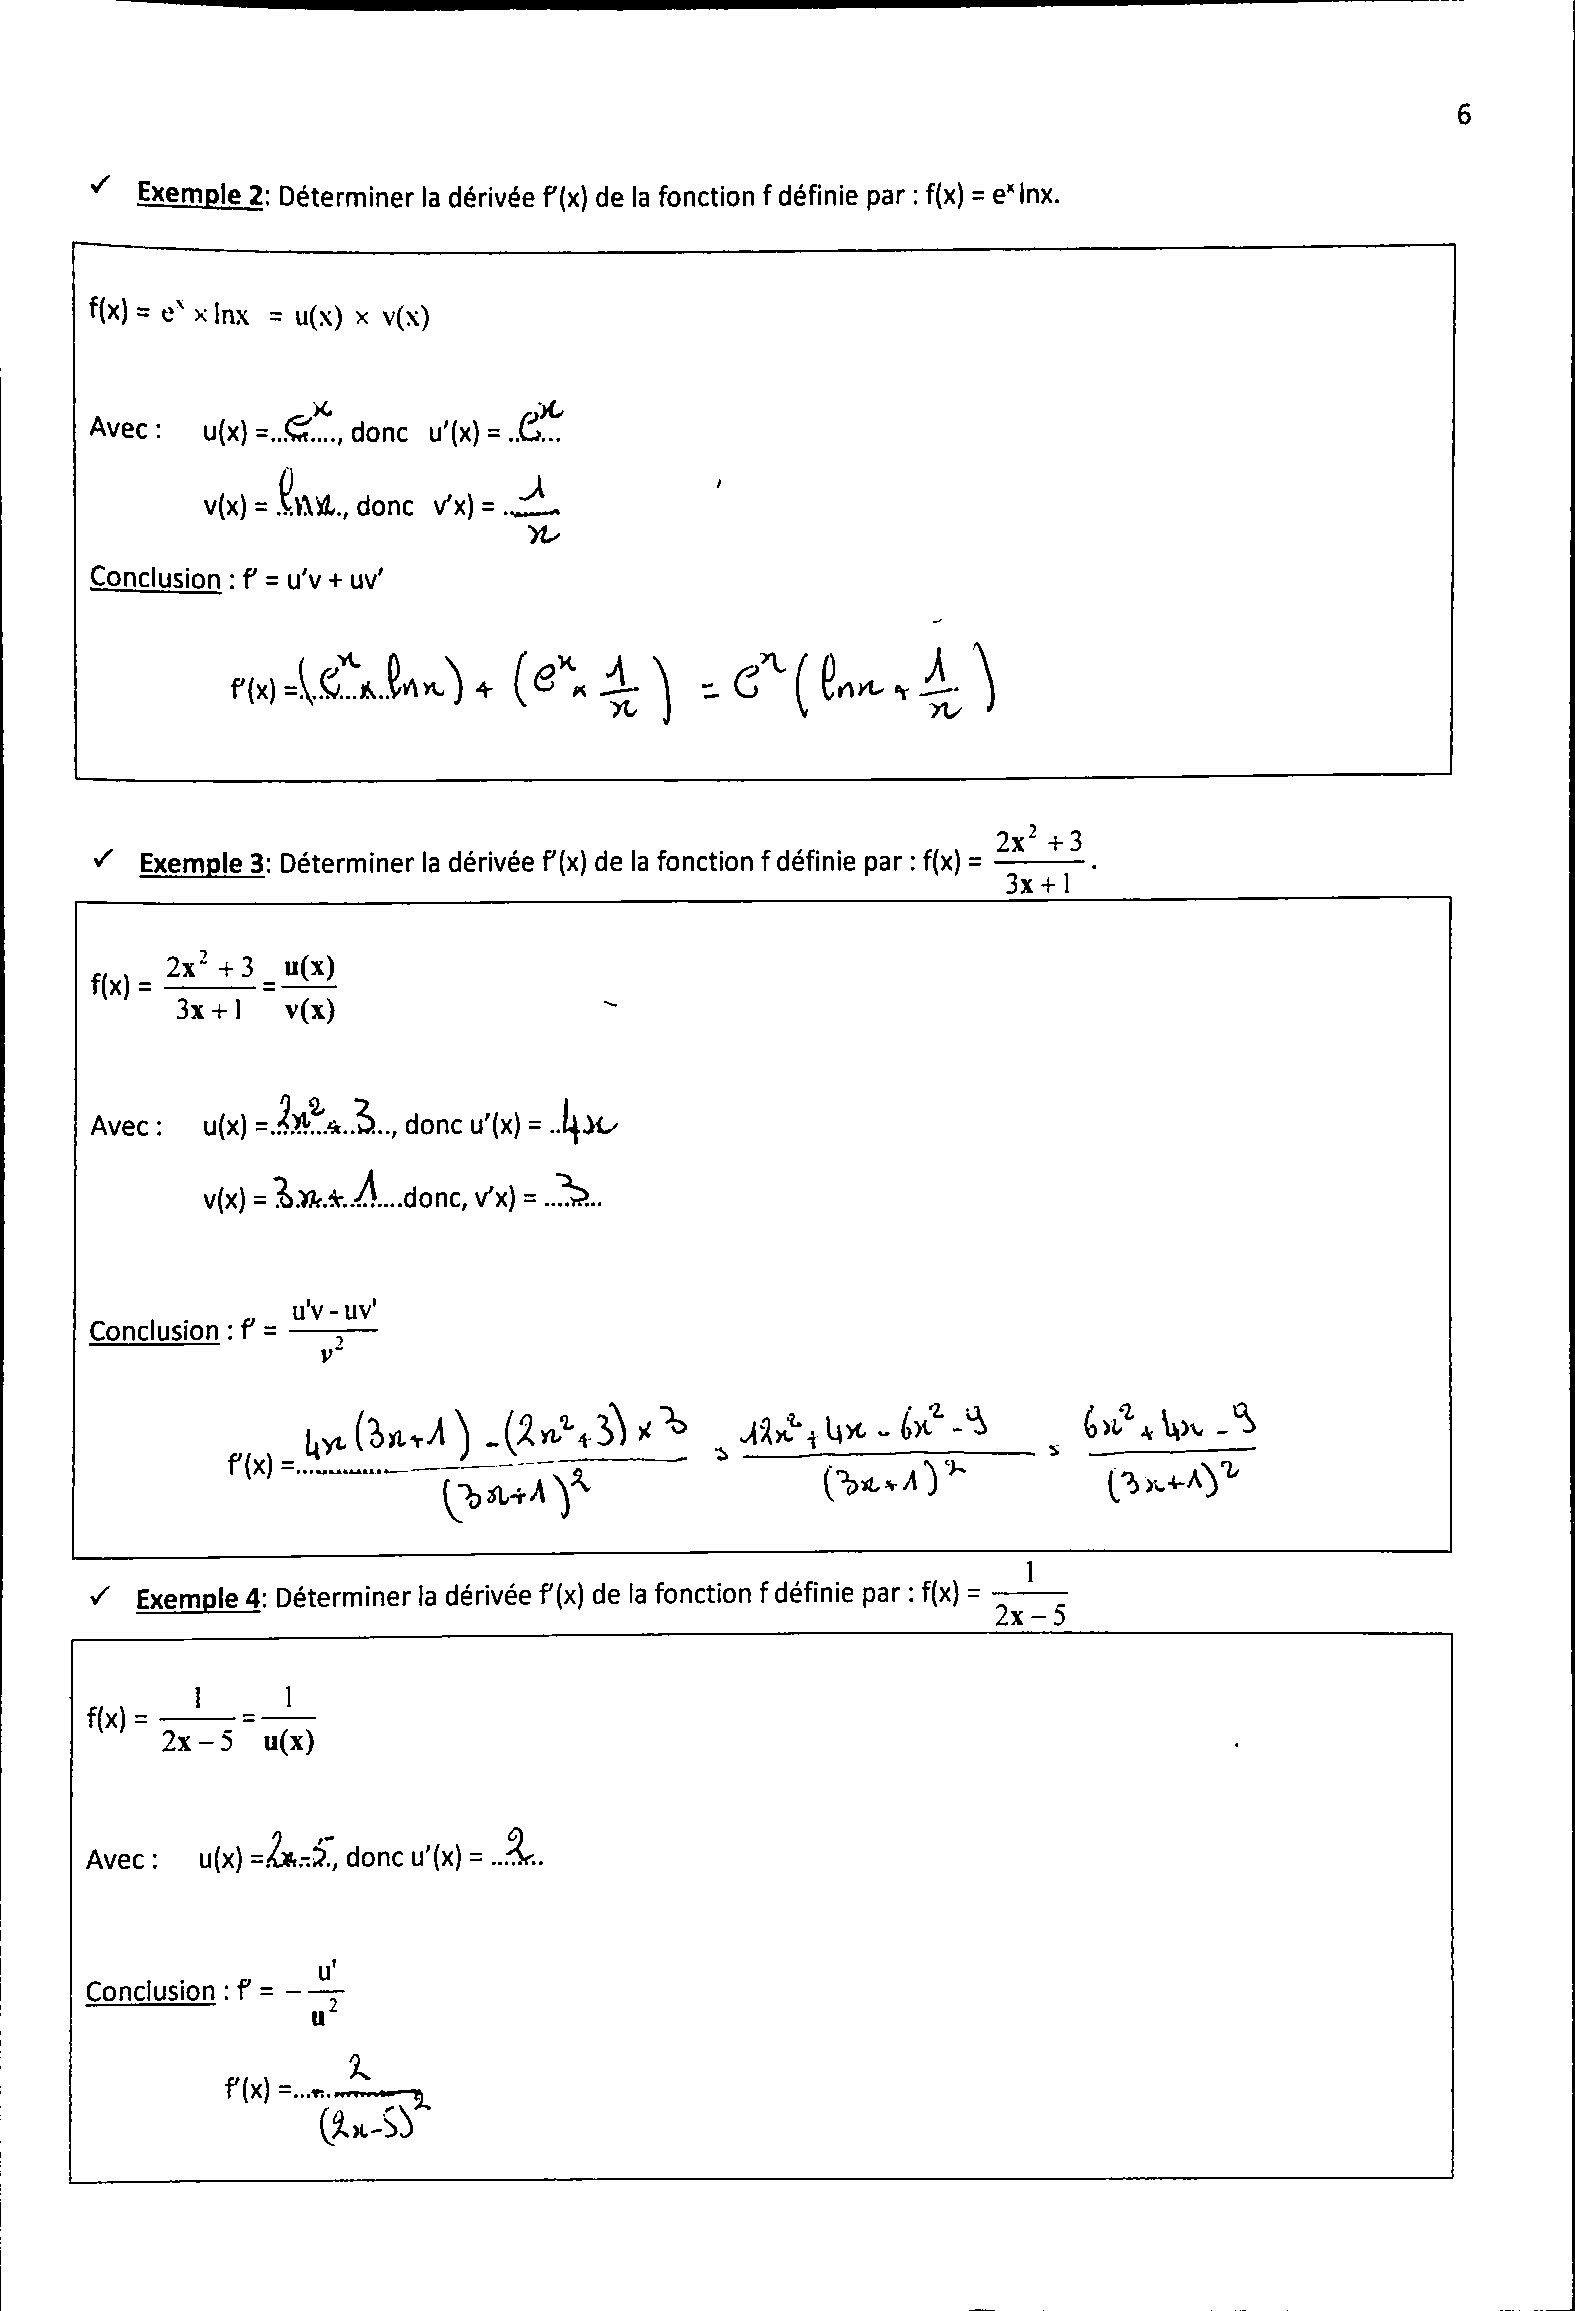 6
✓ Exemple 2: Déterminer la dérivée f'(x) de la fonction f définie par : f(x) = eˣ lnx.
f(x) = eˣ × lnx = u(x) × v(x)
Avec : u(x) = eˣ, donc u'(x) = eˣ
v(x) = lnx, donc v'x) = 1/x
Conclusion : f' = u'v + uv'
f'(x) = (eˣ × lnx) + (eˣ × 1/x) = eˣ (lnx + 1/x)
✓ Exemple 3: Déterminer la dérivée f'(x) de la fonction f définie par : f(x) = (2x² + 3)/(3x + 1).
f(x) = (2x² + 3)/(3x + 1) = u(x)/v(x)
Avec : u(x) = 2x² + 3, donc u'(x) = 4x
v(x) = 3x + 1 donc, v'x) = 3
Conclusion : f' = (u'v - uv')/v²
f'(x) = (4x(3x+1) - (2x²+3) × 3)/(3x+1)² = (12x² + 4x - 6x² - 9)/(3x+1)² = (6x² + 4x - 9)/(3x+1)²
✓ Exemple 4: Déterminer la dérivée f'(x) de la fonction f définie par : f(x) = 1/(2x – 5)
f(x) = 1/(2x – 5) = 1/u(x)
Avec : u(x) = 2x-5, donc u'(x) = 2
Conclusion : f' = – u'/u²
f'(x) = - 2/(2x-5)²